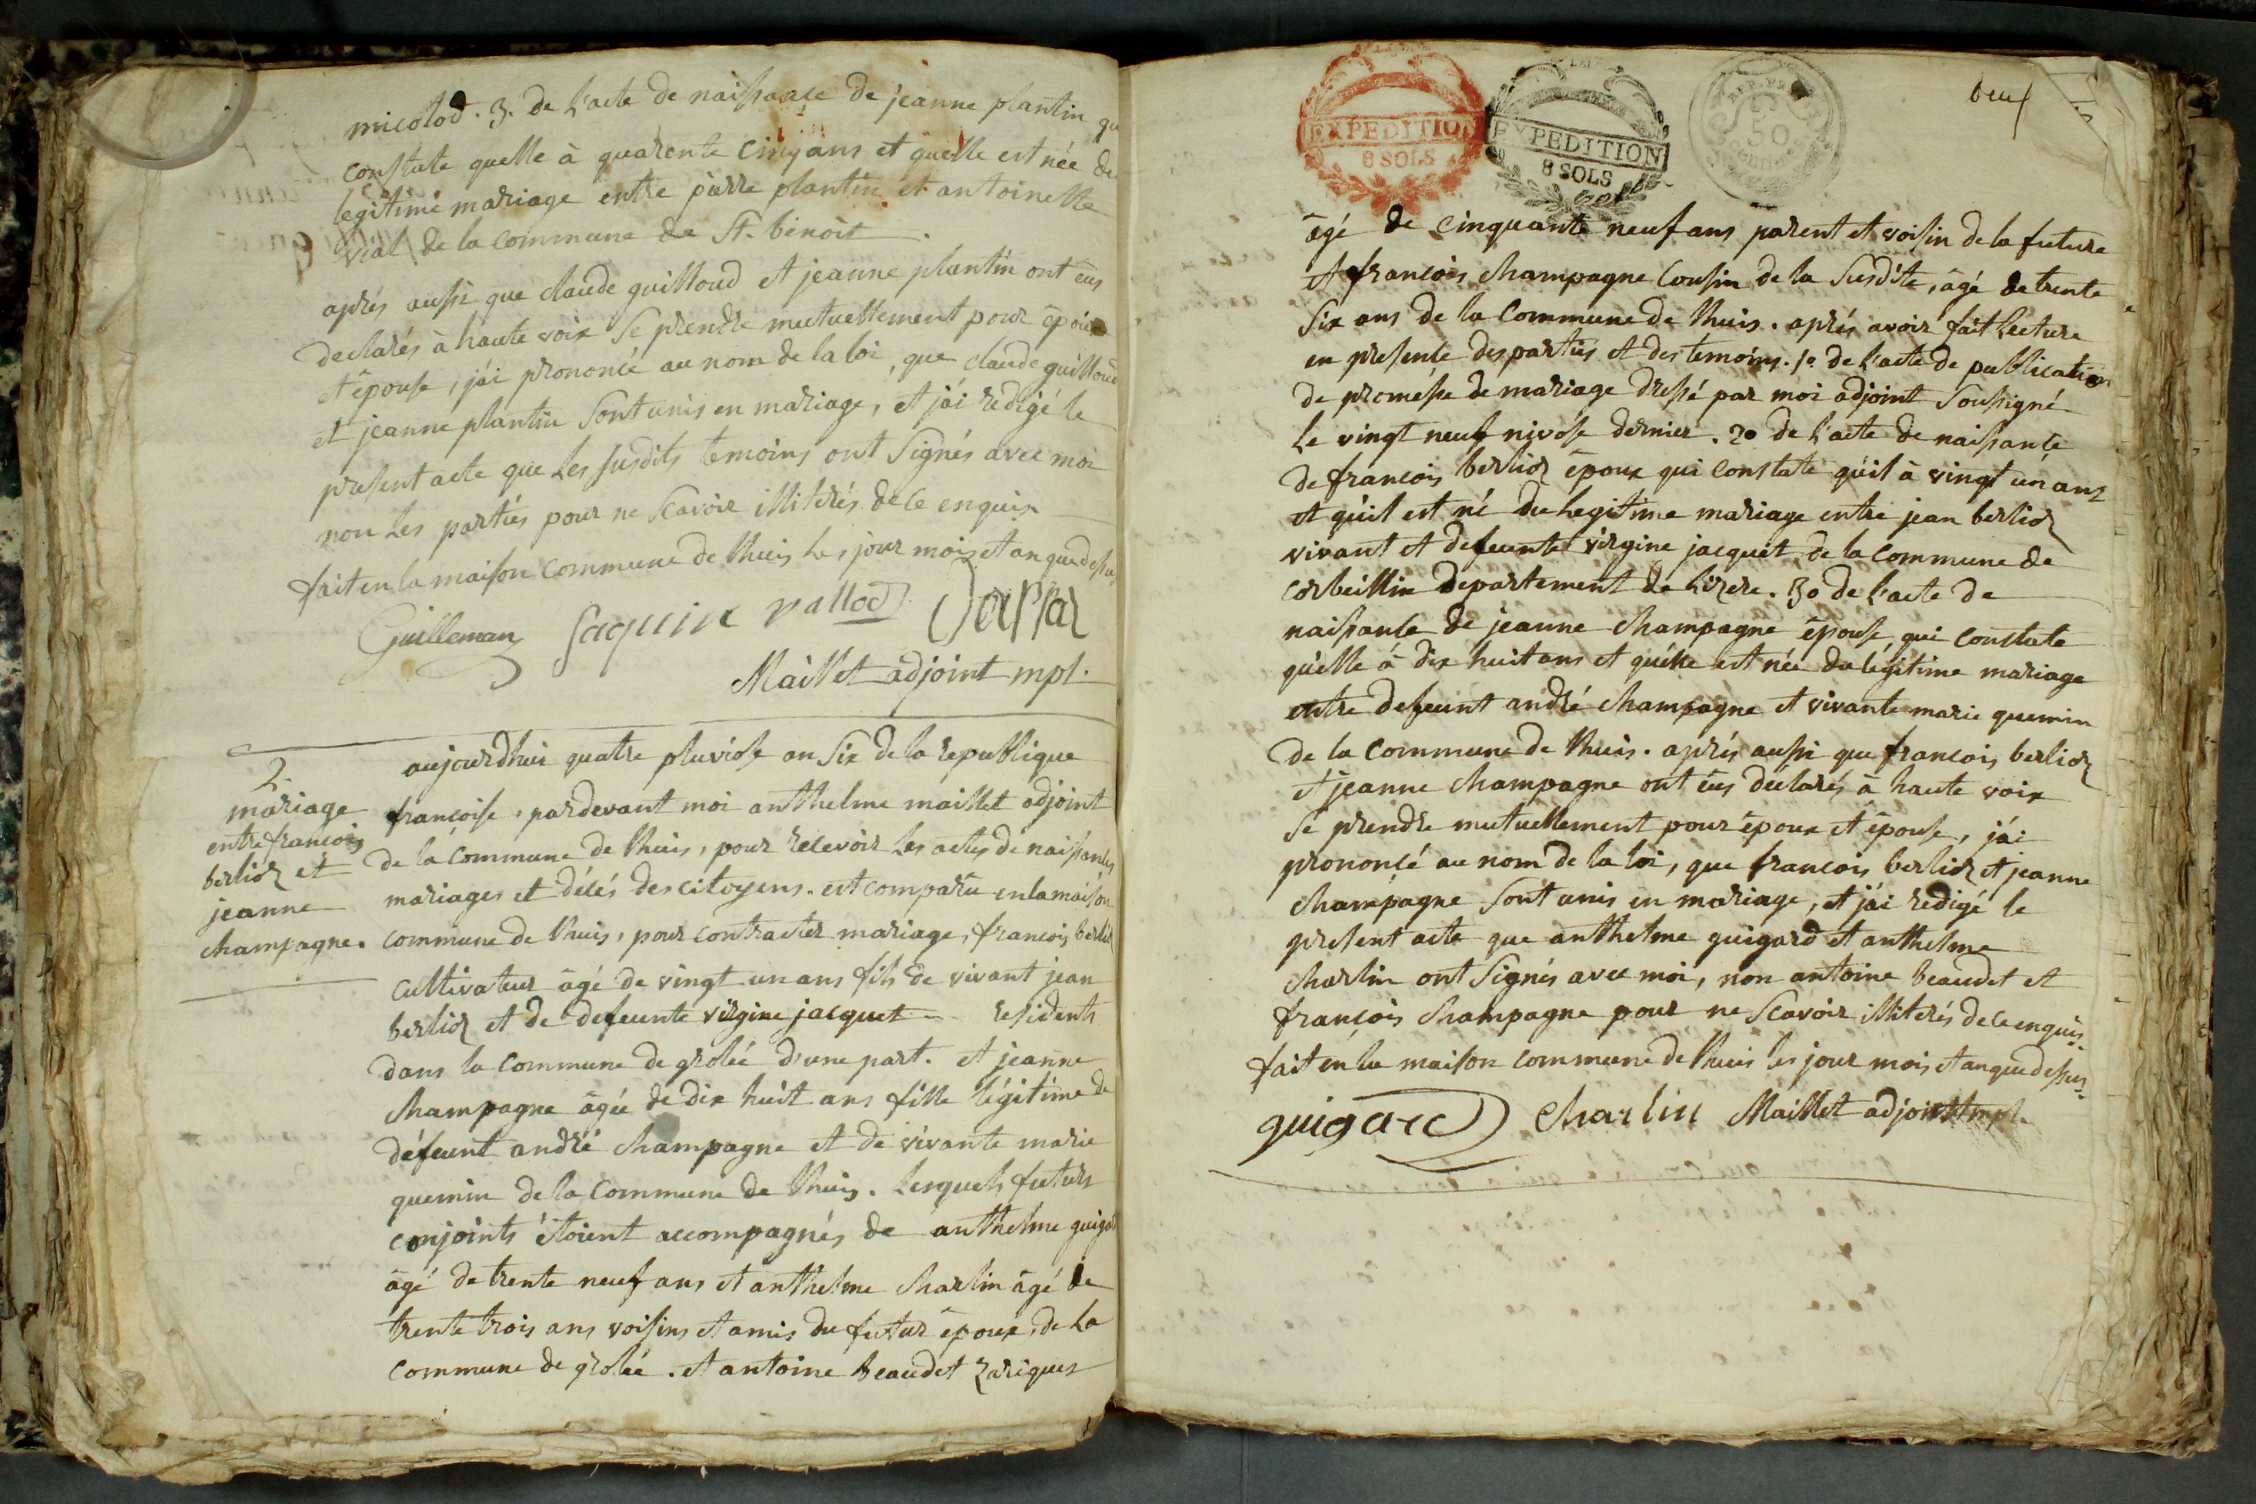 micolod. 3. de l'acte de naissance de jeanne plantin qu
constate quelle à quarente cinq ans et quelle est née de
legitime mariage entre piérre plantin et antoinette
vial de la commune de St. benoit.
aprés aussi que claude guilloud et jeanne plantin ont ëus
declarés à haute voix se prendre mutuellement pour époux
et épouse, j'ái prononcé au nom de la loi, que claude guilloud
et jeanne plantin sont unis en mariage, et j'ái rédigé le
present acte que les susdits temoins ont signés avec moi
non les partiés pour ne scavoir illiterés de ce enquis
fait en la maison commune de lhuis les jour mois et an que dessus
Guilleman Jaquin vallod Dassar
Maillet adjoint mpl.
2
mariage
entre francois
berlioz et
jeanne
champagne.
aujourdhui quatre pluviose an six de la republique
francoise, pardevant moi anthelme maillet adjoint
de la commune de lhuis, pour recevoir les actes de naissances
mariages et décés des citoyens. est comparu en la maison
commune de lhuis, pour contracter mariage, francois berlio
cultivateur âgé de vingt un ans fils de vivant jean
berlioz et de defeunte virgine jacquet residents
dans la commune de grolée d'une part. et jeanne
champagne âgée de dix huit ans fille légitime de
défeunt andré champagne et de vivante marie
quemin de la commune de lhuis. lesquels futurs
conjoints étoient accompagnés de anthelme guigar
âgé de trente neuf ans et anthelme charlin âgé de
trente trois ans voisins et amis du futur époux, de la
commune de grolée. et antoine beaudet
beuf
EXPEDITION
8 SOLS
EXPEDITION
8 SOLS
50
âgé de cinquante neuf ans parent et voisin de la future
et francois champagne cousin de la susdite, âgé de trente
six ans de la commune de lhuis. aprés avoir fait lecture
en presence des partiés et des temoins. 1º de l'acte de publication
de promésse de mariage dressé par moi adjoint soussigné
le vingt neuf nivóse dernier. 2º de l'acte de naissance
de francois berlioz époux qui constate qu'il à vingt un ans
et qu'il est né du legitime mariage entre jean berlioz
vivant et defeunte virgine jacquet de la commune de
corbeillin departement de lizere. 3º de l'acte de
naissance de jeanne champagne épouse qui constate
qu'elle à dix huit ans et qu'élle est née du légitime mariage
entre defeunt andré champagne et vivante marie quemin
de la commune de lhuis. aprés aussi que francois berlioz
et jeanne champagne ont ëus déclarés à haute voix
se prendre mutuellement pour époux et épouse, j'ái
prononcé au nom de la loi, que francois berlioz et jeanne
champagne sont unis en mariage, et j'ái redigé le
present acte que anthelme guigard et anthelme
charlin ont signés avec moi, non antoine beaudet et
françois champagne pour ne scavoir illiterés de ce enquis.
fait en la maison commune de lhuis les jour mois et an que dessus.
guigard Charlin Maillet adjoint mpl.